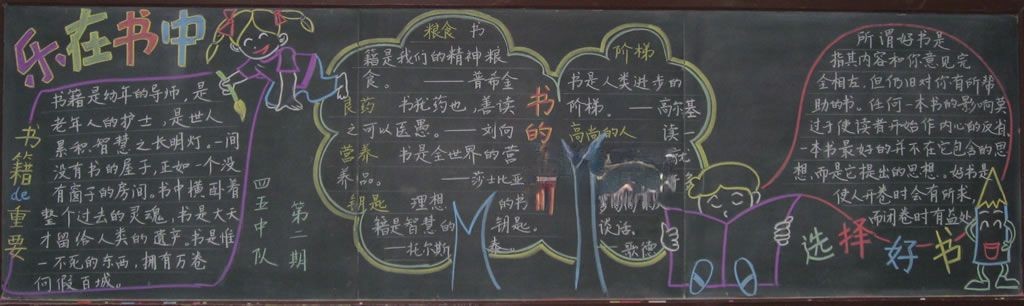 乐在书中
书籍de重要
书籍是幼年的导师，是
老年人的护士，是世人
累积智慧之长明灯。一间
没有书的屋子，正如一个没
有窗子的房间。书中横卧着
整个过去的灵魂，书是大天
才留给人类的遗产，书是惟
一不死的东西，拥有万卷
何假百城。
四五中队
第二期
粮食 书
籍是我们的精神粮
食。——普希金
良药 书犹药也，善读
之可以医愚。——刘向
营养 书是全世界的营
养品。——莎士比亚
钥匙 理想的书
籍是智慧的钥匙。
——托尔斯泰
书的
阶梯
书是人类进步的
阶梯。——高尔基
高尚的人 读一
谈话。
——歌德
所谓好书是
指其内容和你意见完
全相左，但仍旧对你有所帮
助的书。任何一本书的影响莫
过于使读者开始作内心的反省，
一本书最好的并不在它包含的思
想，而是它提出的思想。好书是
使人开卷时会有所求，
而闭卷时有益处
选择好书